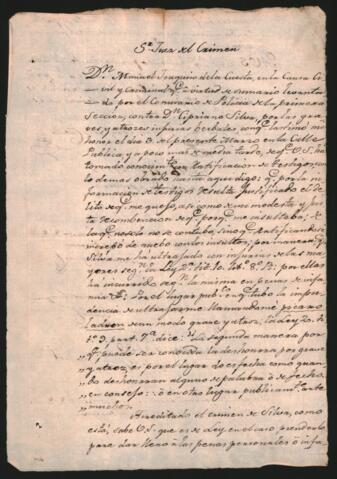 Sr. Juez del Crimen
Dn. Manuel Joaquin de la Cuesta, en la Causa Ci-
vil y Criminal qe. á virtud de sumario levanta-
da por el Comisario de Policia de la primera
Seccion, contra Dn. Cipriano Silva, por las gra-
ves, y atroces injurias berbales con qe. lastimó mi ho-
nor el dia 3 del presente Marzo en la Calle
Publica, y a poco mas de medio dia, de qe. V.S. ha
tomado conocimto. ratificacion de testigos, y
lo demas obrado hasta aqui digo: qe. por la in-
formacion de testigos resulta justificado el de-
lito de qe. me quejo, asi como de mi modestia, y pru-
te me insultaba; i
lo qual no solo no se contubo, sino qe. ratificandose
de nuebo con los insultos; por manera qe.
Silva me ha ultrajado con injurias de las ma-
yores segn. la Ley 2a. tit. 10. lib. 8. R. por ellas
ha incurrido segn. la misma en penas de infa-
mia &a. Por el lugar pubco. en qe. tubo la impru-
dencia de ultrajarme llamandome picaro
ladron de un modo grave y atroz, la Ley 20.
tto. 9. part. 7a. dice: "La segunda manera por
qe. puede ser conocida la deshonrra por grave
y atroz, es por el lugar do es fecha como quan-
do deshonrran alguno de palabra ó de fecho,
en consejo: ó en otro lugar publicamte. ante
muchos"
Acreditado el crimen de Silva, como
está, sabe V.S. que es de Ley en el caso prenderlo
para dar lleno a las penas personales é infa-